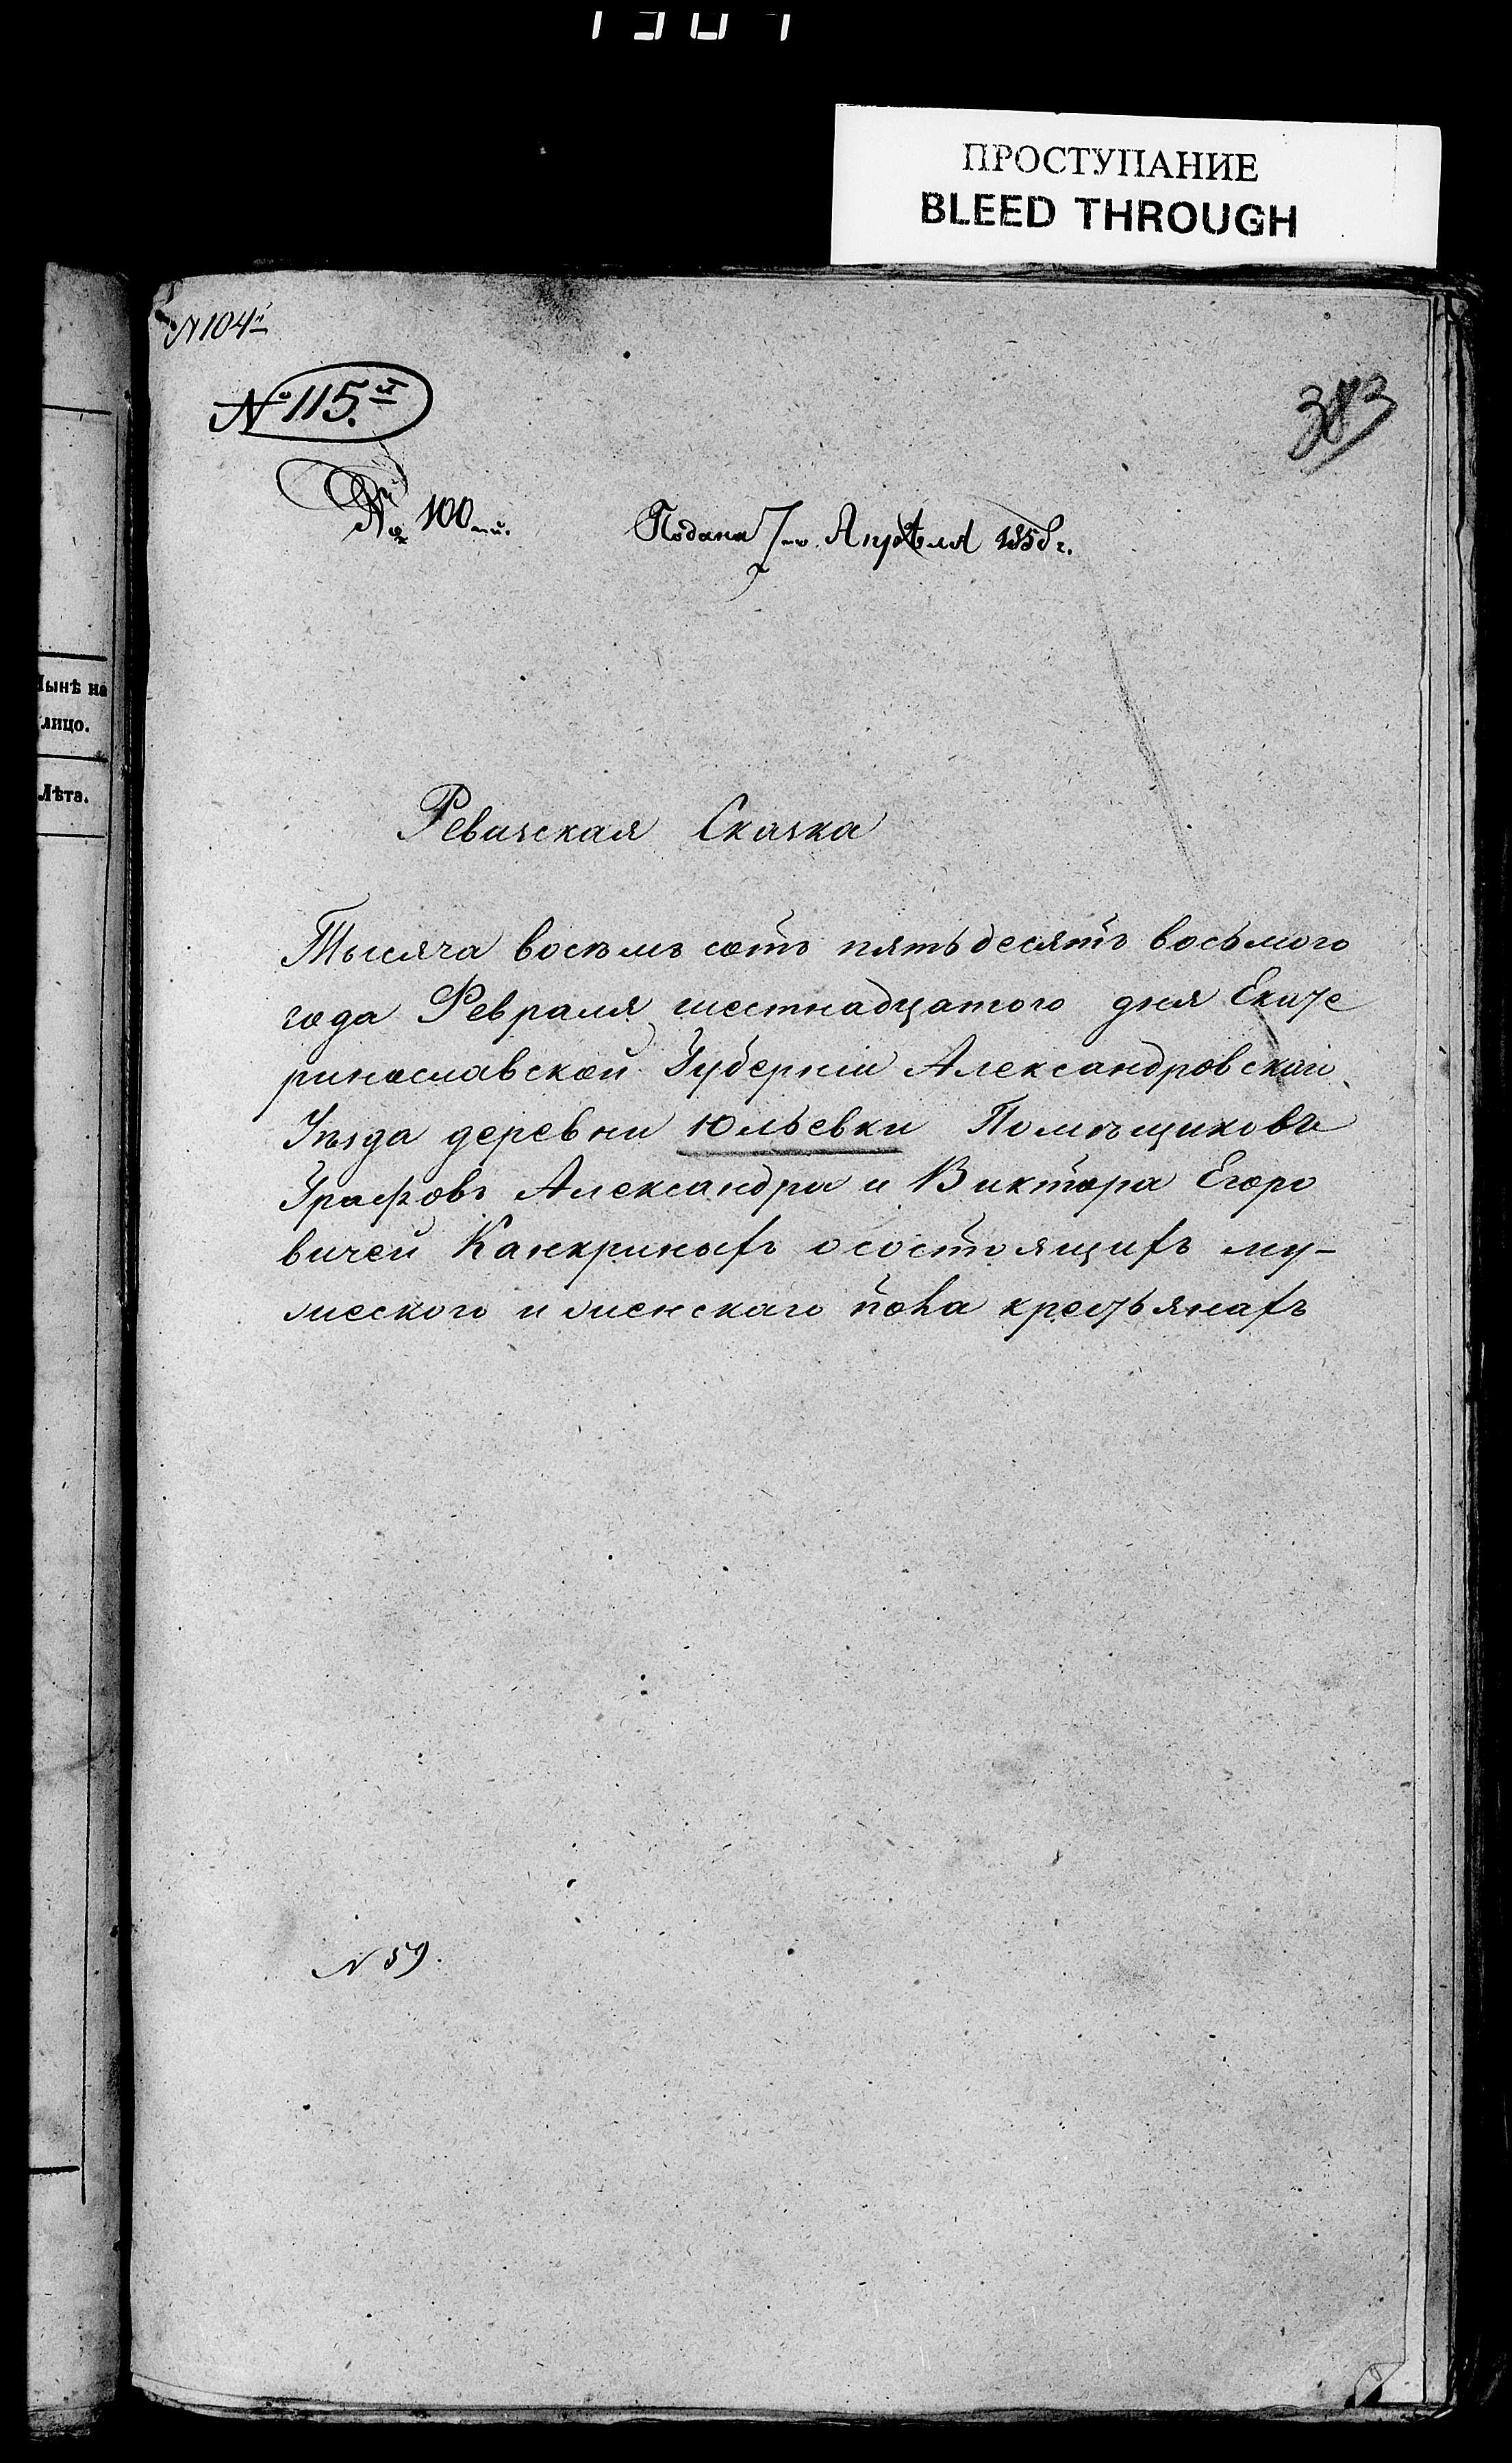 ПРОСТУПАНИЕ
BLEED THROUGH
Нынѣ на
лицо.
Лѣта.
N 104й
№ 115.й
383
№ 100ый.
Подана 7го Апрѣля 1858 г.
Ревизская Сказка
Тысяча восѣмъ сотъ пятьдесятъ восьмого
года Февраля шестнадцатого дня Екате
ринославской Губерніи Александровскаго
Уѣзда деревни Юльевки Помѣщиковъ
Графовъ Александра и Виктора Егоро
вичей Канкриныхъ о состоящихъ му-
жеского и женскаго пола крестьянахъ
N 59.